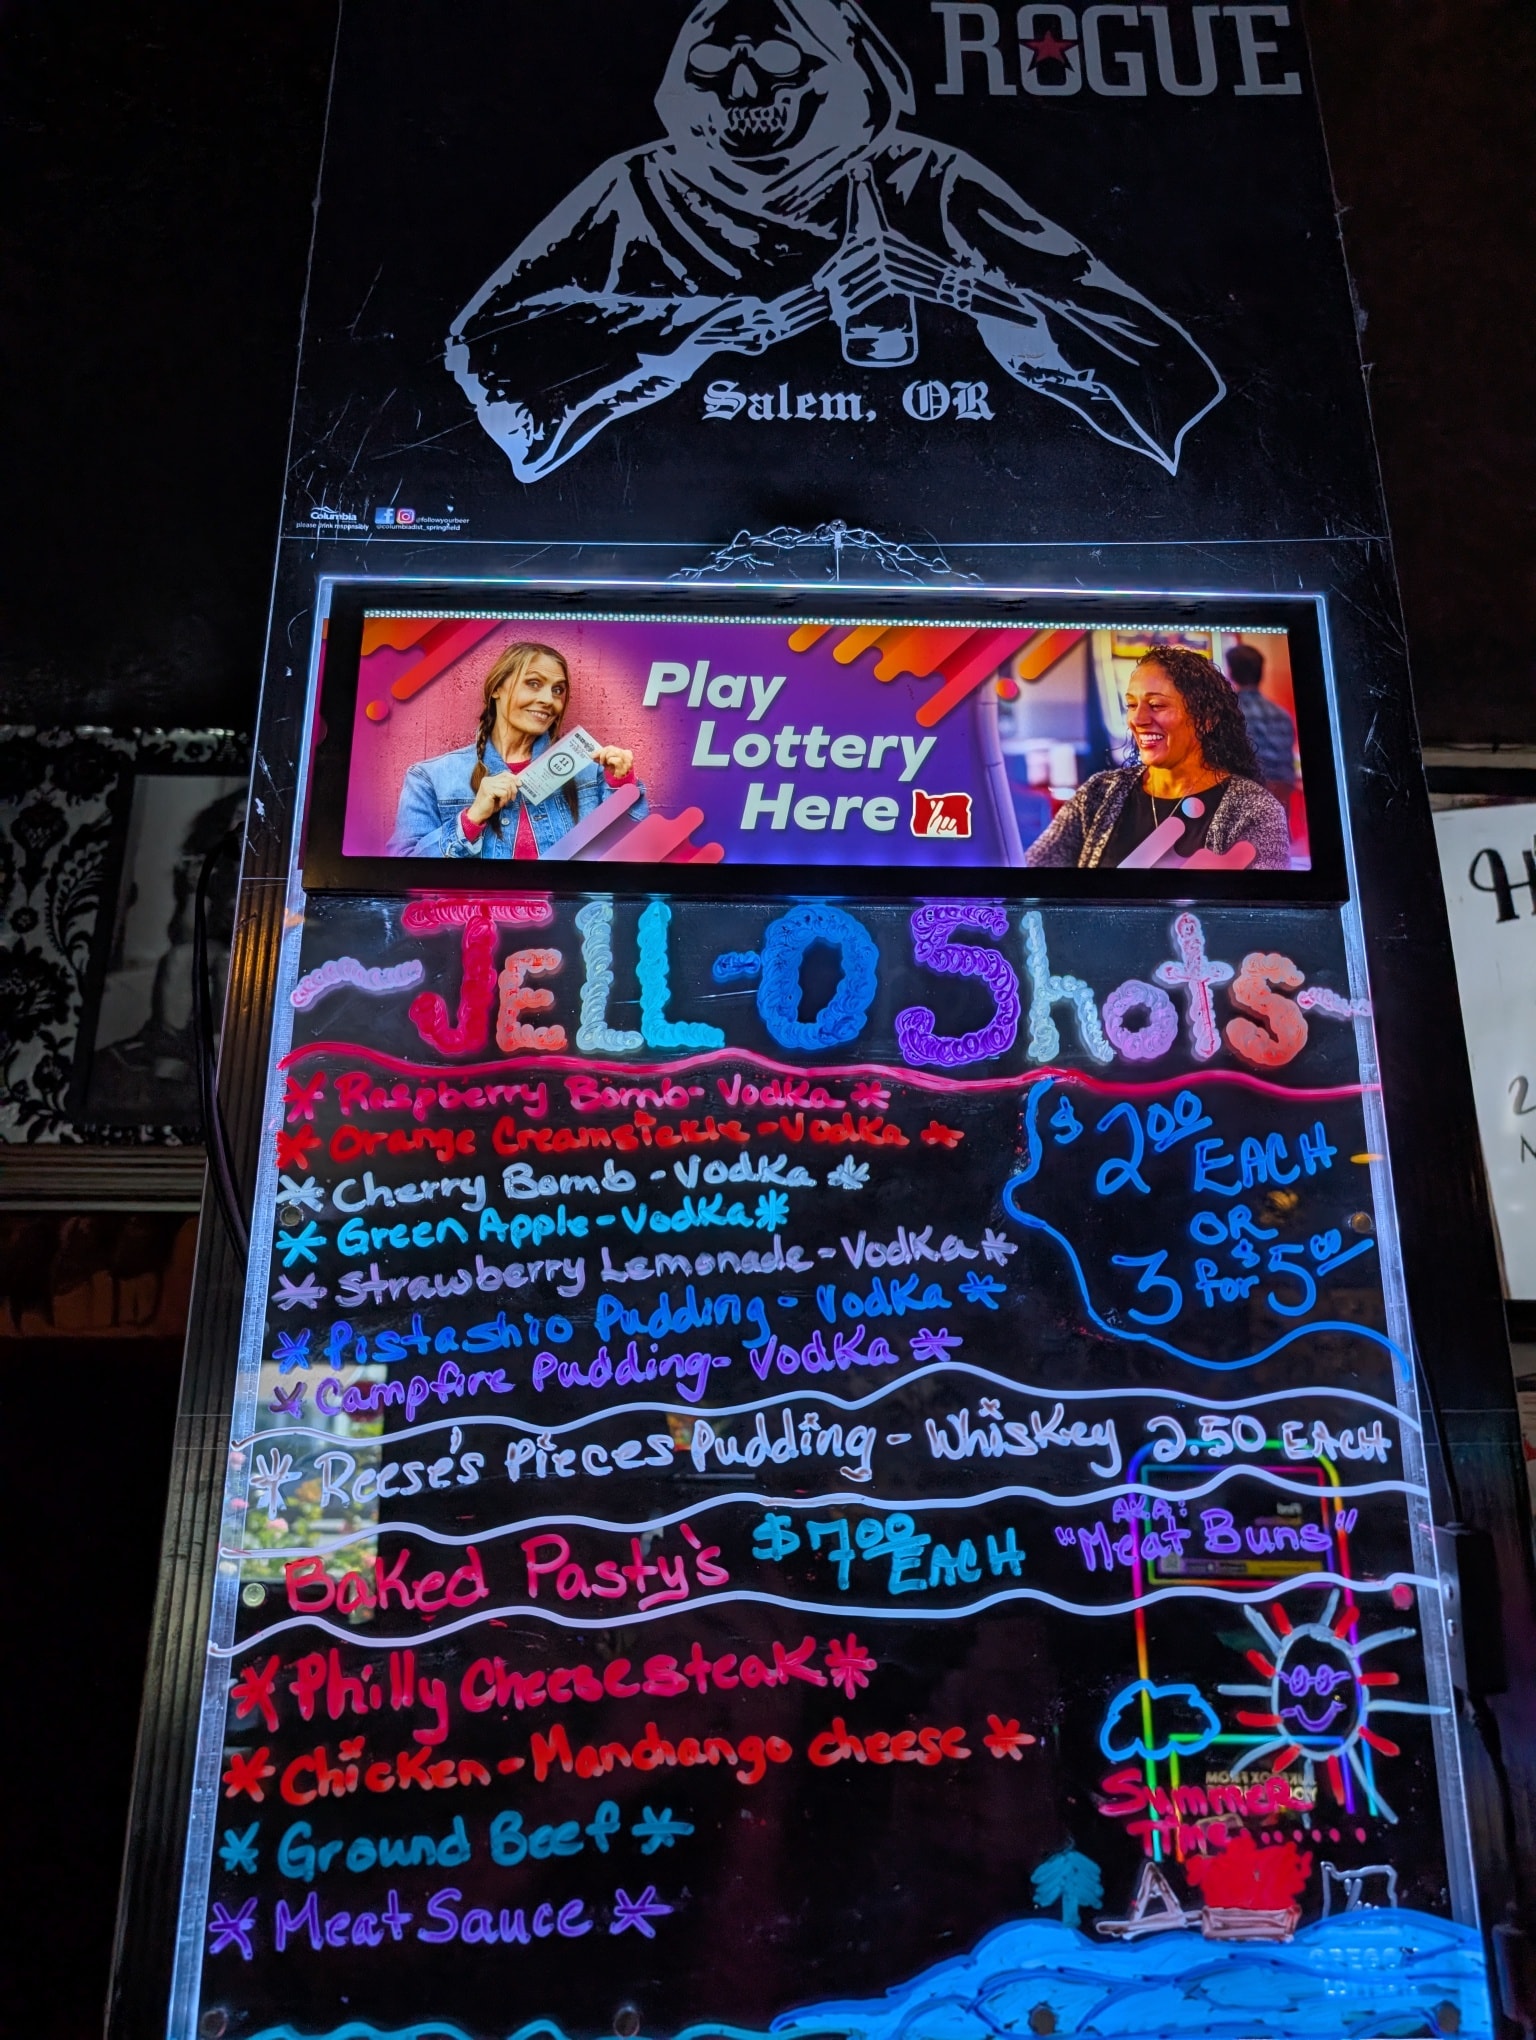 ROGUE
Salem, OR
Columbia
please drink responsibly
@followyourbeer
@columbiadist_springfield
Play
Lottery
Here
~JELL-O Shots~
* Raspberry Bomb - Vodka *
* Orange Creamsickle - Vodka *
* Cherry Bomb - Vodka *
* Green Apple - Vodka *
* Strawberry Lemonade - Vodka *
* Pistashio Pudding - Vodka *
* Campfire Pudding - Vodka *
$2.00
EACH
OR
3 for $5.00
* Reese's Pieces Pudding - Whiskey 2.50 EACH
Baked Pasty's $7.00 EACH
A.K.A:
"Meat Buns"
* Philly Cheesesteak *
* Chicken - Manchango cheese *
* Ground Beef *
* Meat Sauce *
Summer
Time.......